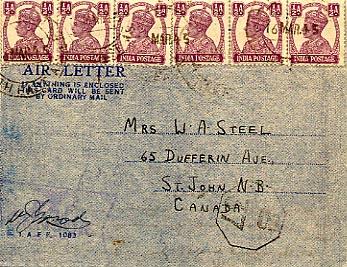 ½A ½A ½A ½A ½A ½A
INDIA POSTAGE INDIA POSTAGE INDIA POSTAGE INDIA POSTAGE INDIA POSTAGE INDIA POSTAGE
16 MAR 45
AIR LETTER
IS ENCLOSED
CARD WILL BE SENT
BY ORDINARY MAIL
MRS W A STEEL
65 DUFFERIN AVE,
ST. JOHN N.B.
CANADA
I.A.F.F. 1083